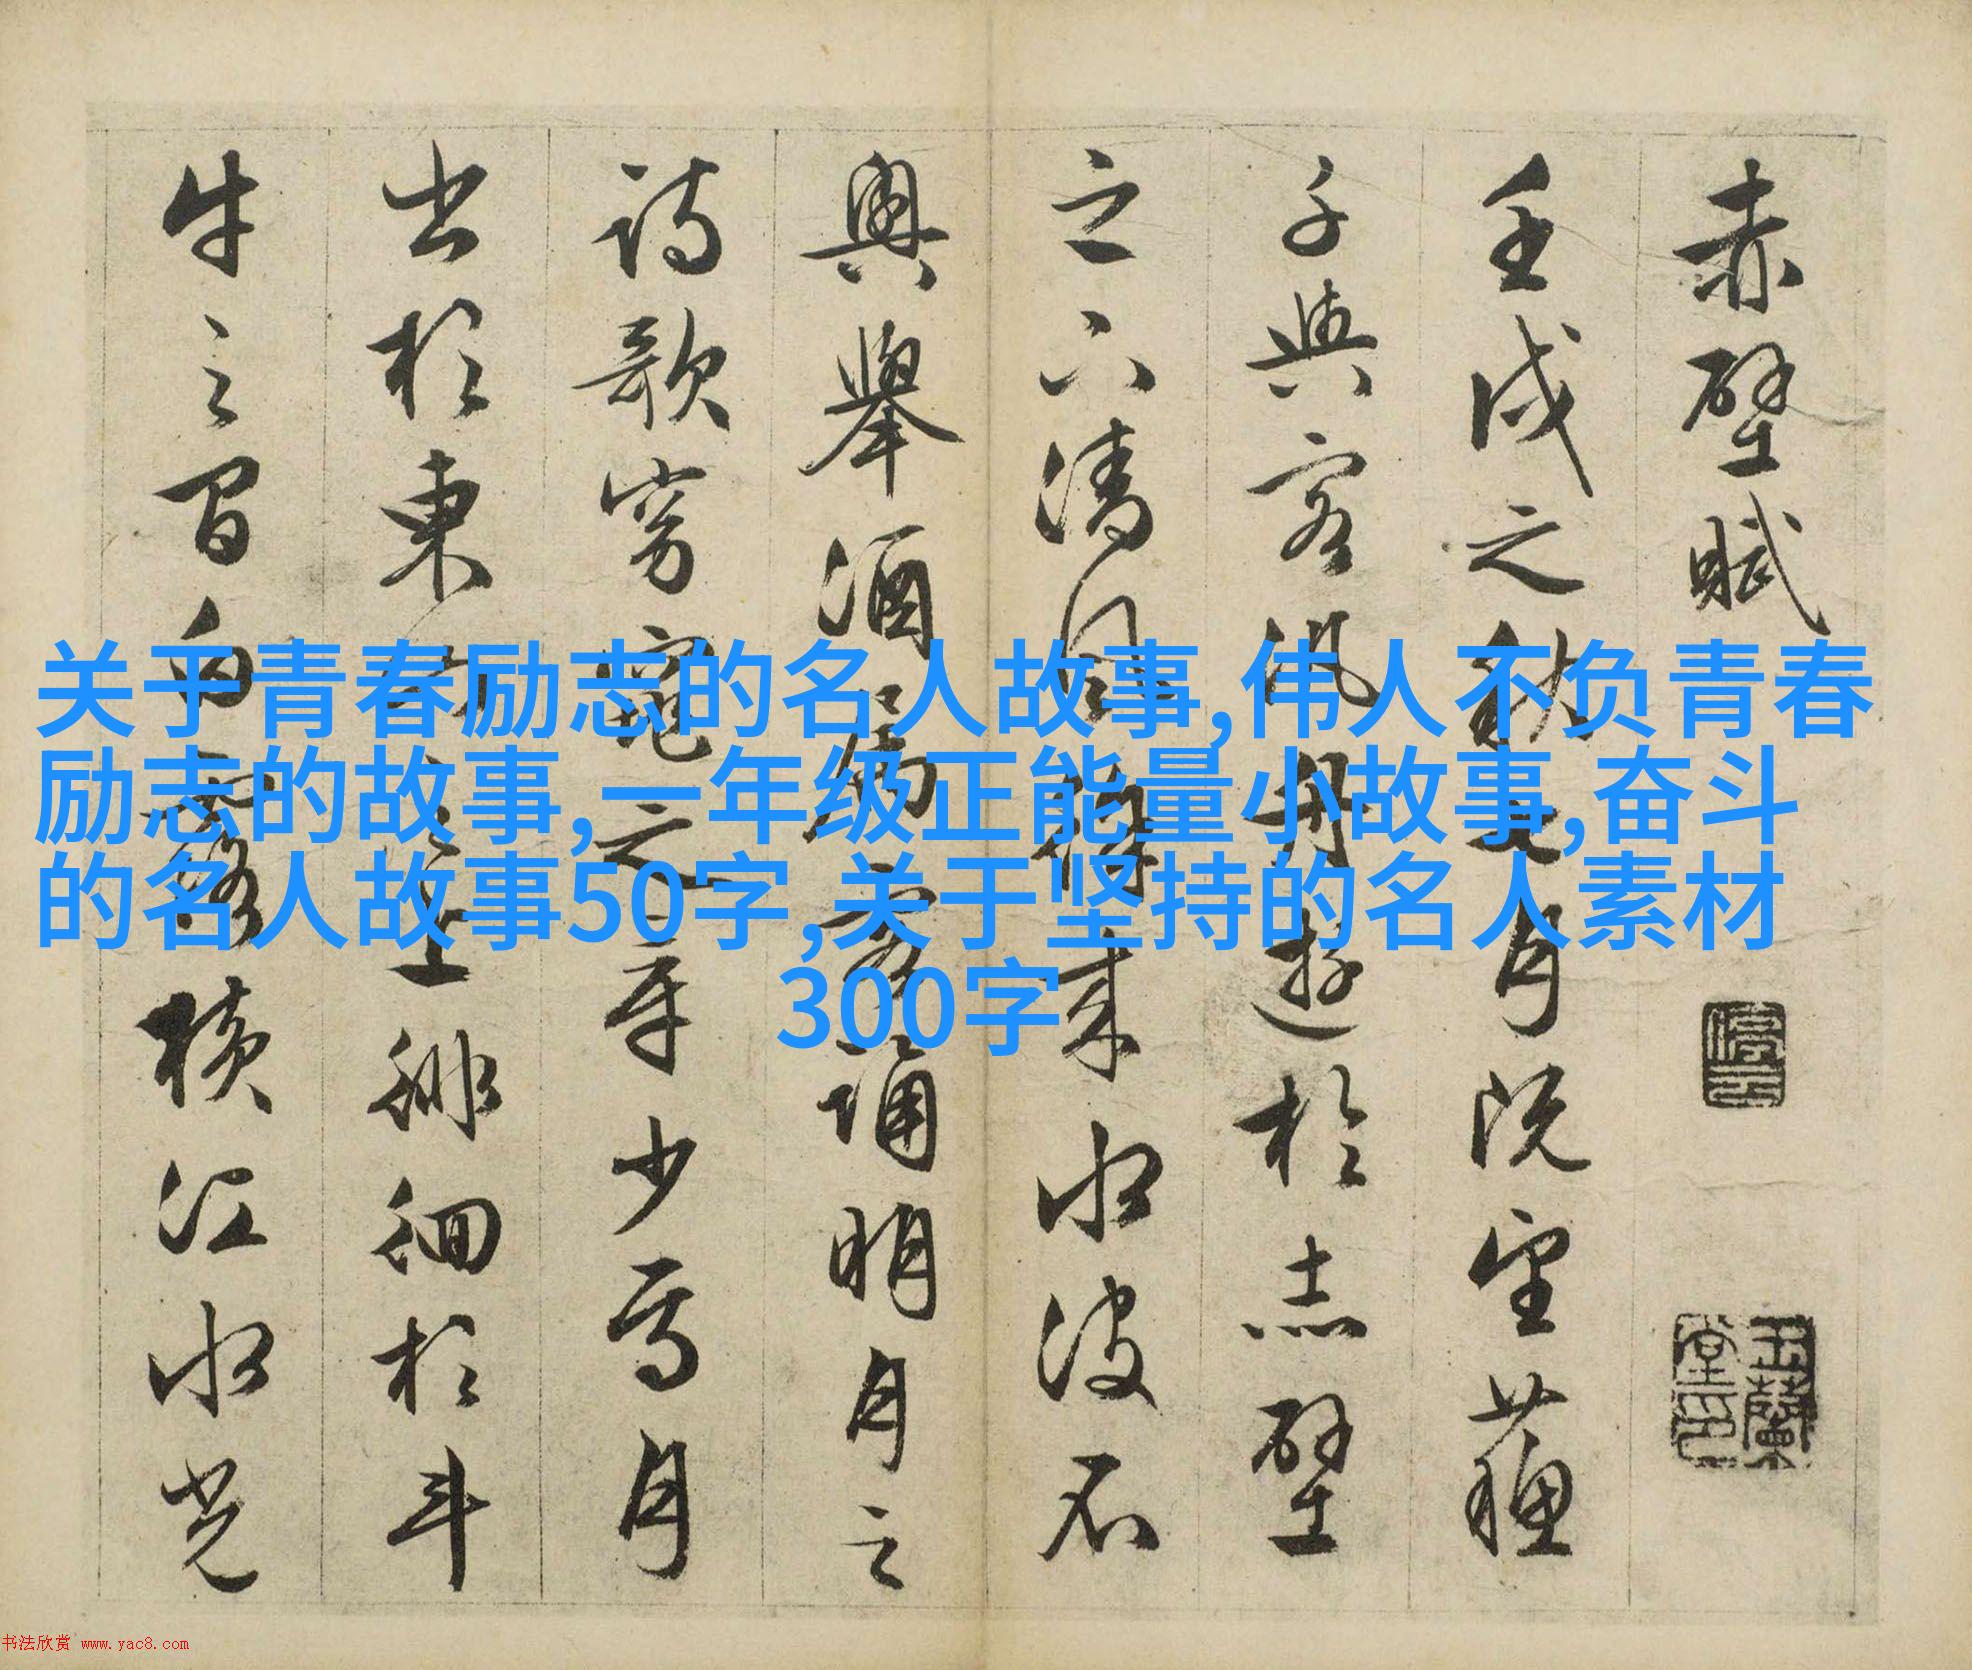 赤壁賦
壬戌之秋七月既望蘇
子與客汎舟遊於赤壁
之下清風徐來水波不
興舉酒屬客誦明月之
詩歌窈窕之章少焉月
出於東山之上徘徊於斗
牛之間白露橫江水光
停云
玉蘭堂印
关于青春励志的名人故事,伟人不负青春
励志的故事,一年级正能量小故事,奋斗
的名人故事50字,关于坚持的名人素材
300字
书法欣赏 www.yac8.com